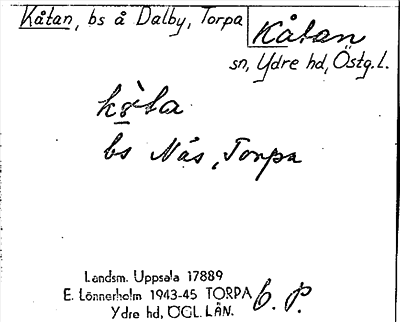 Kåtan, bs å Dalby, Torpa
Kåtan
sn, Ydre hd, Östg.l.
bs Näs, Torpa
Landsm. Uppsala 17889
E. Lönnerholm 1943-45 TORPA
Ydre hd, ÖGL. LÄN.
b. p.